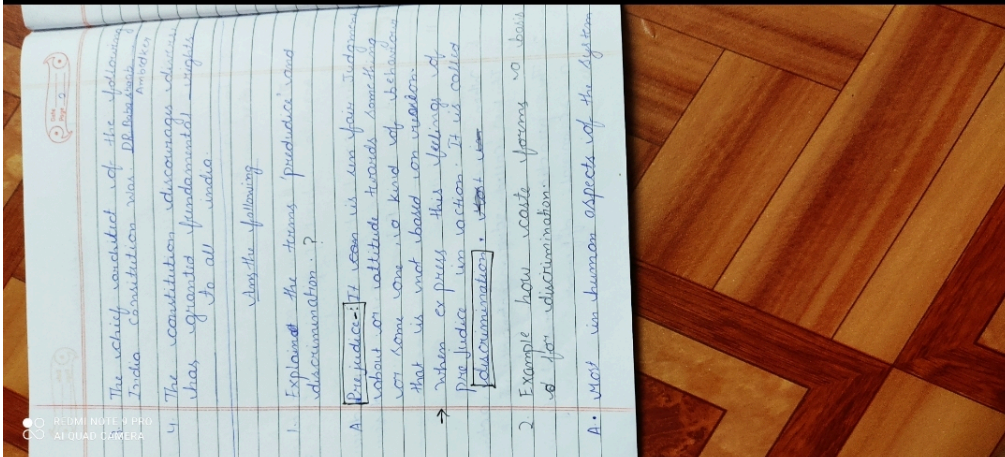 The chief architect of the following
India constitution was. DR Babasaheb
Ambedker
4 The constitution discourages
has grantid fundamental rights
to all india
Ans the following
1. Explained the terms 'predudice' and
discrimination.?
A. Prejudice-: It is un fair Judgment
about or attitude twards something
or some one, a kind of behaviour
that is not based on reason
→ When express this feeling of
pre judice in action. It is called
discrimination.
2. Example how caste forms a basis
for discrimination.
A. Most in human aspects of the system
REDMI NOTE 9 PRO
AI QUAD CAMERA